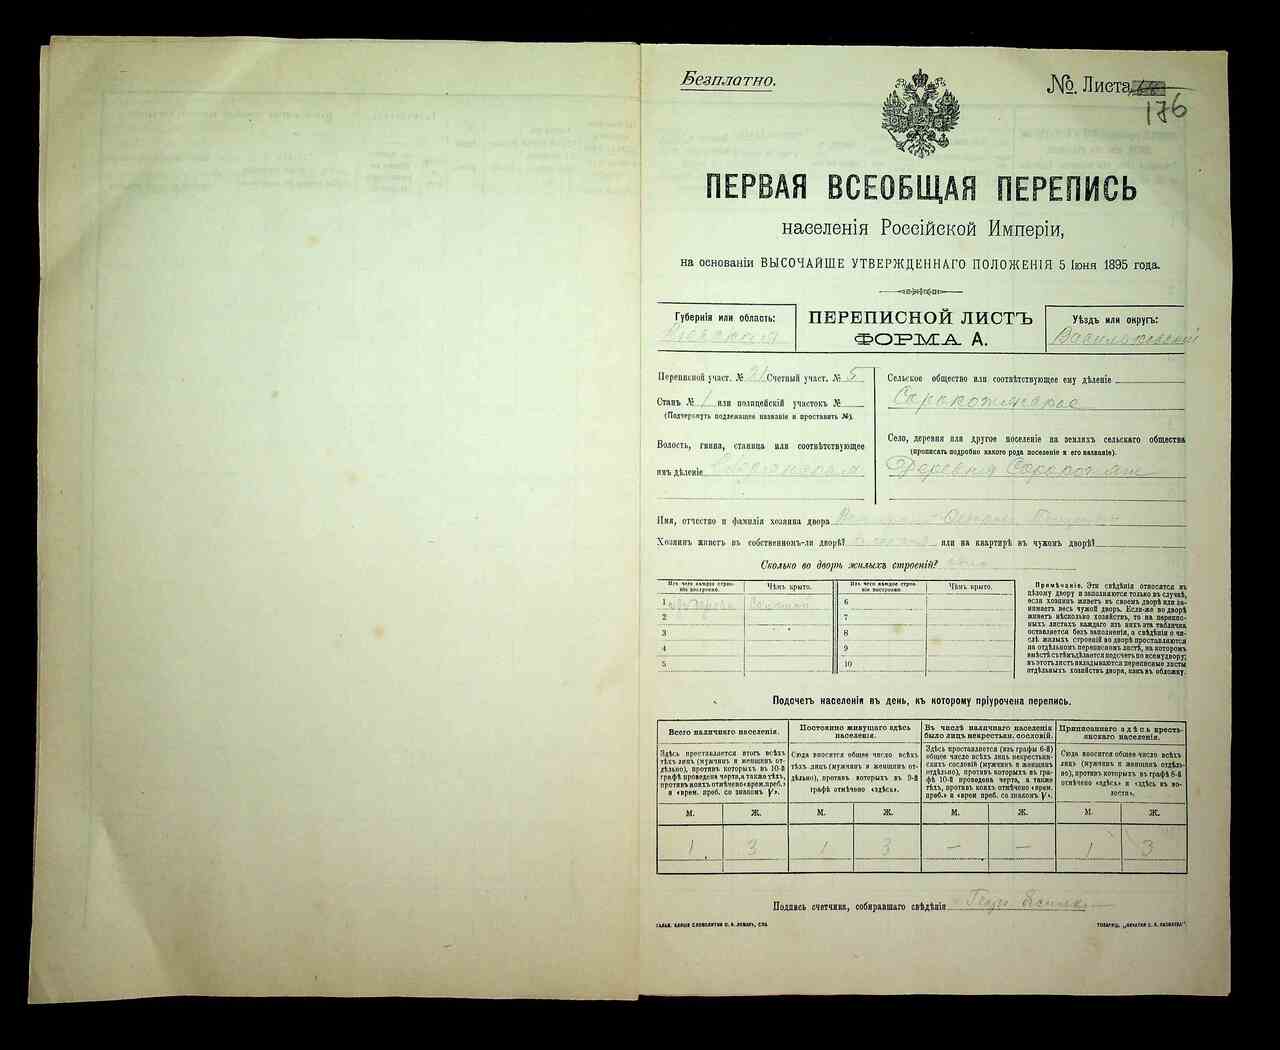 Безплатно.
№. Листа
176
ПЕРВАЯ ВСЕОБЩАЯ ПЕРЕПИСЬ
населенія Россійской Имперіи,
на основаніи ВЫСОЧАЙШЕ УТВЕРЖДЕННАГО ПОЛОЖЕНІЯ 5 Іюня 1895 года.
Губернія или область:
Кіевская
ПЕРЕПИСНОЙ ЛИСТЪ
ФОРМА А.
Уѣздъ или округъ:
Васильковскій
Переписной участ. № 21 Счетный участ. № 5
Станъ № 1 или полицейскій участокъ №
(Подчеркнуть подлежащее названіе и проставить №).
Волость, гмина, станица или соотвѣтствующее
имъ дѣленіе
Сельское общество или соотвѣтствующее ему дѣленіе
Село, деревня или другое поселеніе на земляхъ сельскаго общества
(прописать подробно какого рода поселеніе и его названіе).
Деревня
Имя, отчество и фамилія хозяина двора
Хозяинъ живетъ въ собственномъ-ли дворѣ? или на квартирѣ въ чужомъ дворѣ?
Сколько во дворѣ жилыхъ строеній?
Изъ чего каждое строеніе построено. Чѣмъ крыто. Изъ чего каждое строеніе построено. Чѣмъ крыто.
1 изъ дерева Соломой 6
2 7
3 8
4 9
5 10
Примѣчаніе. Эти свѣдѣнія относятся къ
цѣлому двору и заполняются только въ случаѣ,
если хозяинъ живетъ въ своемъ дворѣ или занимаетъ
весь чужой дворъ. Если-же во дворѣ
живетъ нѣсколько хозяйствъ, то на переписныхъ
листахъ каждаго изъ нихъ эта табличка
оставляется безъ заполненія, а свѣдѣнія о числѣ
жилыхъ строеній во дворѣ проставляются
на отдѣльномъ переписномъ листѣ, на которомъ
вмѣстѣ съ тѣмъ дѣлается подсчетъ по всему двору;
въ этотъ листъ вкладываются переписные листы
отдѣльныхъ хозяйствъ двора, какъ въ обложку.
Подсчетъ населенія въ день, къ которому пріурочена перепись.
Всего наличнаго населенія.
Здѣсь проставляется итогъ всѣхъ
тѣхъ лицъ (мужчинъ и женщинъ отдѣльно),
противъ которыхъ въ 10-й
графѣ проведена черта, а также тѣхъ,
противъ коихъ отмѣчено «врем. преб.»
и «врем. преб. со знакомъ V».
Постоянно живущаго здѣсь
населенія.
Сюда вносится общее число всѣхъ
тѣхъ лицъ (мужчинъ и женщинъ отдѣльно),
противъ которыхъ въ 9-й
графѣ отмѣчено «здѣсь».
Въ числѣ наличнаго населенія
было лицъ некрестьян. сословій.
Здѣсь проставляется (изъ графы 6-й)
общее число всѣхъ лицъ некрестьянскихъ
сословій (мужчинъ и женщинъ
отдѣльно), противъ которыхъ въ графѣ
10-й проведена черта, а также
тѣхъ, противъ коихъ отмѣчено «врем.
преб.» и «врем преб. со знакомъ V».
Приписаннаго здѣсь крестьянскаго
населенія.
Сюда вносится общее число всѣхъ
лицъ (мужчинъ и женщинъ отдѣльно),
противъ которыхъ въ графѣ 8-й
отмѣчено «здѣсь» и «здѣсь въ волости».
М. Ж. М. Ж. М. Ж. М. Ж.
1 3 1 3 — — 1 3
Подпись счетчика, собиравшаго свѣдѣнія